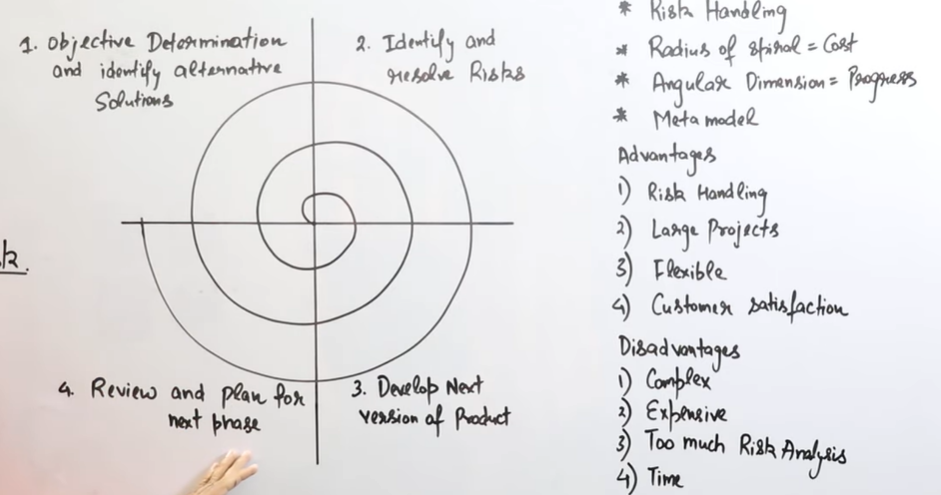 1. Objective Determination
and identify alternative
Solutions
2. Identify and
resolve Risks
4. Review and plan for
next phase
3. Develop Next
version of Product
k.
* Risk Handling
* Radius of spiral = Cost
* Angular Dimension = Progress
* Meta model
Advantages
1) Risk Handling
2) Large Projects
3) Flexible
4) Customer satisfaction
Disadvantages
1) Complex
2) Expensive
3) Too much Risk Analysis
4) Time